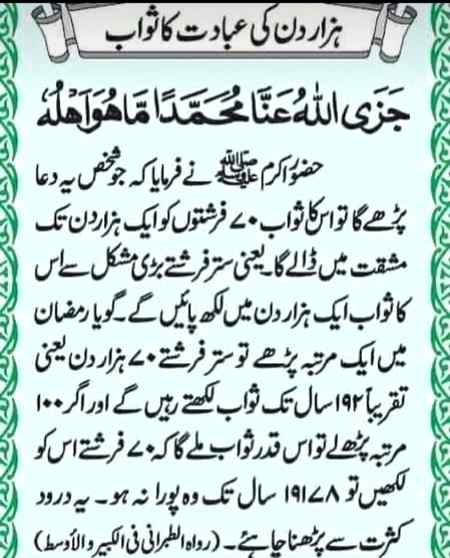 ہزار دن کی عبادت کا ثواب
جَزَی اللہُ عَنَّا مُحَمَّدًا مَّا ھُوَ اَھْلُهٗ
حضور اکرم ﷺ نے فرمایا کہ جو شخص یہ دعا
پڑھے گا تو اس کا ثواب ۷۰ فرشتوں کو ایک ہزار دن تک
مشقت میں ڈالے گا۔ یعنی ستر فرشتے بڑی مشکل سے اس
کا ثواب ایک ہزار دن میں لکھ پائیں گے۔ گویا رمضان
میں ایک مرتبہ پڑھے تو ستر فرشتے ۷۰ ہزار دن یعنی
تقریباً ۱۹۲ سال تک ثواب لکھتے رہیں گے اور اگر ۱۰۰
مرتبہ پڑھ لے تو اس قدر ثواب ملے گا کہ ۷۰ فرشتے اس کو
لکھیں تو ۱۹۱۷۸ سال تک وہ پورا نہ ہو۔ یہ درود
کثرت سے پڑھنا چاہئے۔ (رواہ الطبرانی فی الکبیر والأوسط)